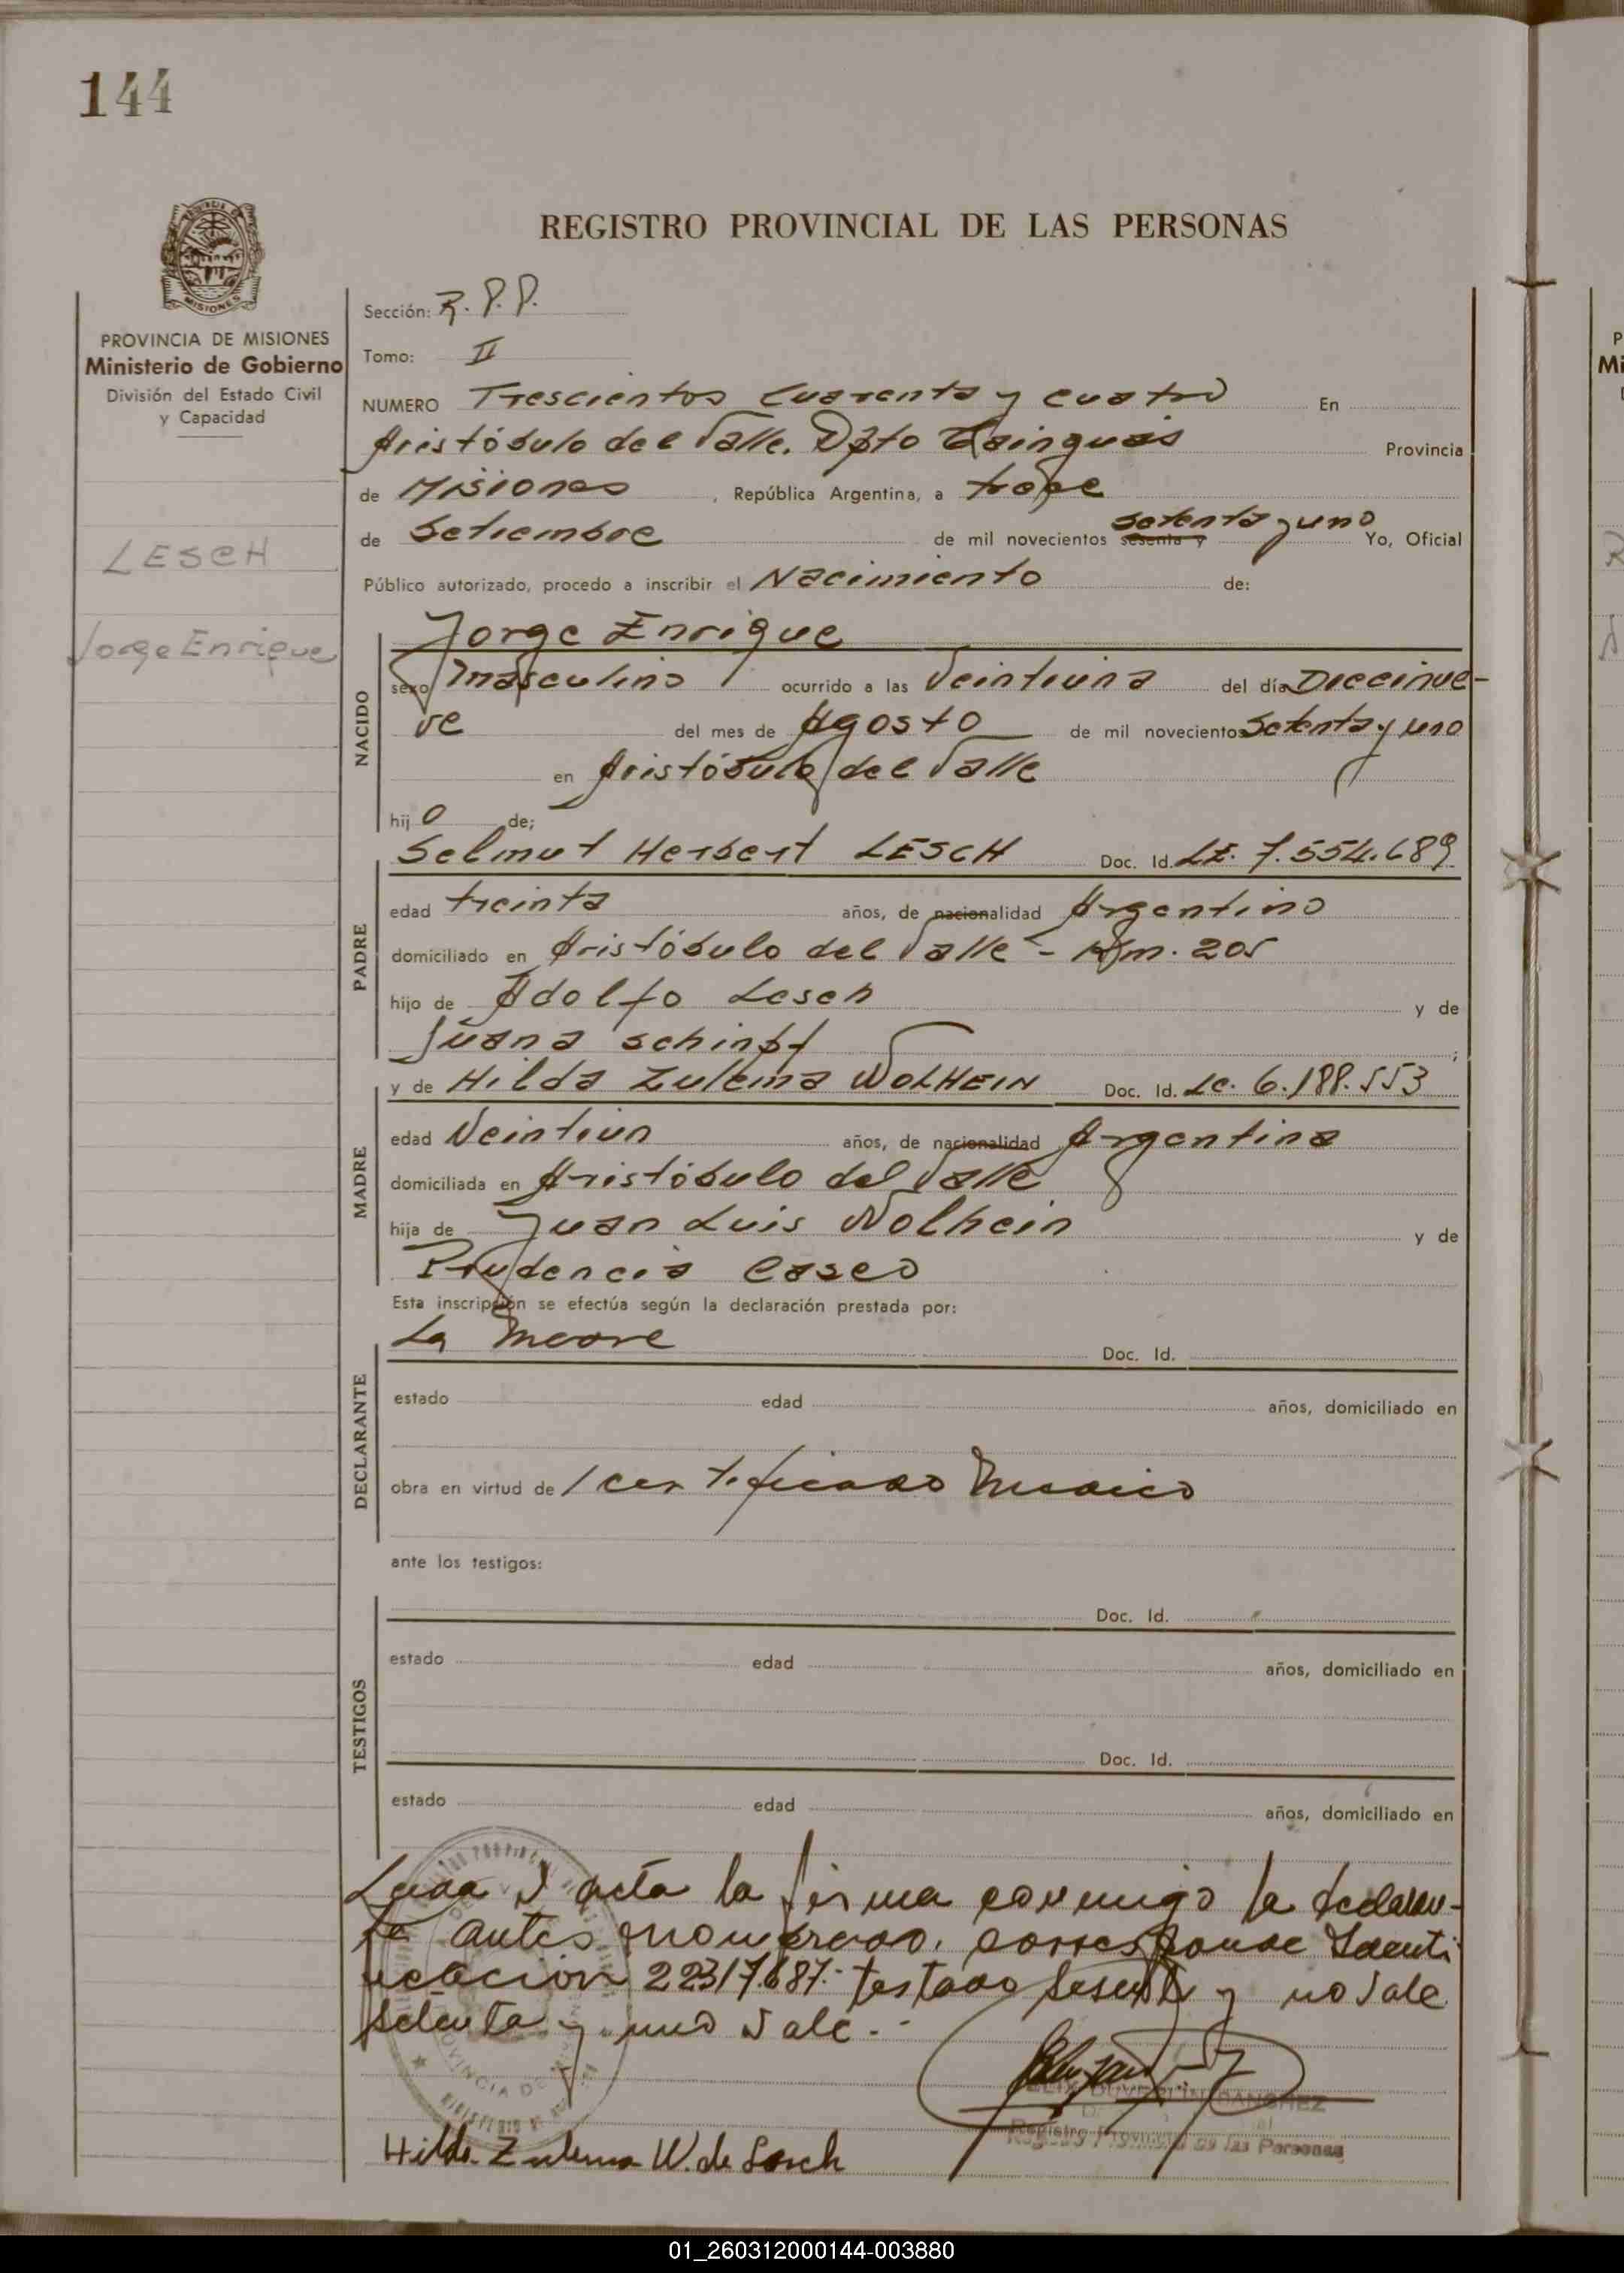 144
REGISTRO PROVINCIAL DE LAS PERSONAS
MISIONES
PROVINCIA DE MISIONES
Ministerio de Gobierno
División del Estado Civil
y Capacidad
LESCH
Jorge Enrique
Sección: R.P.P.
Tomo: II
NUMERO Trescientos Cuarenta y cuatro En
Aristóbulo del Valle. Dpto Cainguás Provincia
de Misiones, República Argentina, a trece
de Setiembre de mil novecientos sesenta y setenta y uno Yo, Oficial
Público autorizado, procedo a inscribir el Nacimiento de:
NACIDO
Jorge Enrique
sexo masculino ocurrido a las Veintiuna del día Diecinue-
ve del mes de Agosto de mil novecientos Setenta y uno
en Aristóbulo del Valle
hijo de;
PADRE
Selmut Herbert LESCH Doc. Id. LE. 7.554.689
edad treinta años, de nacionalidad Argentino
domiciliado en Aristóbulo del Valle - Km. 205
hijo de Adolfo Lesch y de
Juana Schinpf;
MADRE
y de Hilda Zulema WOLHEIN Doc. Id. LC. 6.188.553
edad Veintiun años, de nacionalidad Argentina
domiciliada en Aristóbulo del Valle
hija de Juan Luis Wolhein y de
Prudencia Casco
Esta inscripción se efectúa según la declaración prestada por:
DECLARANTE
La Madre Doc. Id.
estado edad años, domiciliado en
obra en virtud de / certificado Medico
ante los testigos:
TESTIGOS
Doc. Id.
estado edad años, domiciliado en
Doc. Id.
estado edad años, domiciliado en
Leida el acta la firma conmigo la declaran-
te antes nombrada. corresponde Identi
ficacion 22317.687.- testado sesenta y no vale
setenta y uno vale.-
SANCHEZ
Registro Provincial de las Personas
Hilda Zulema W. de Lesch
01_260312000144-003880